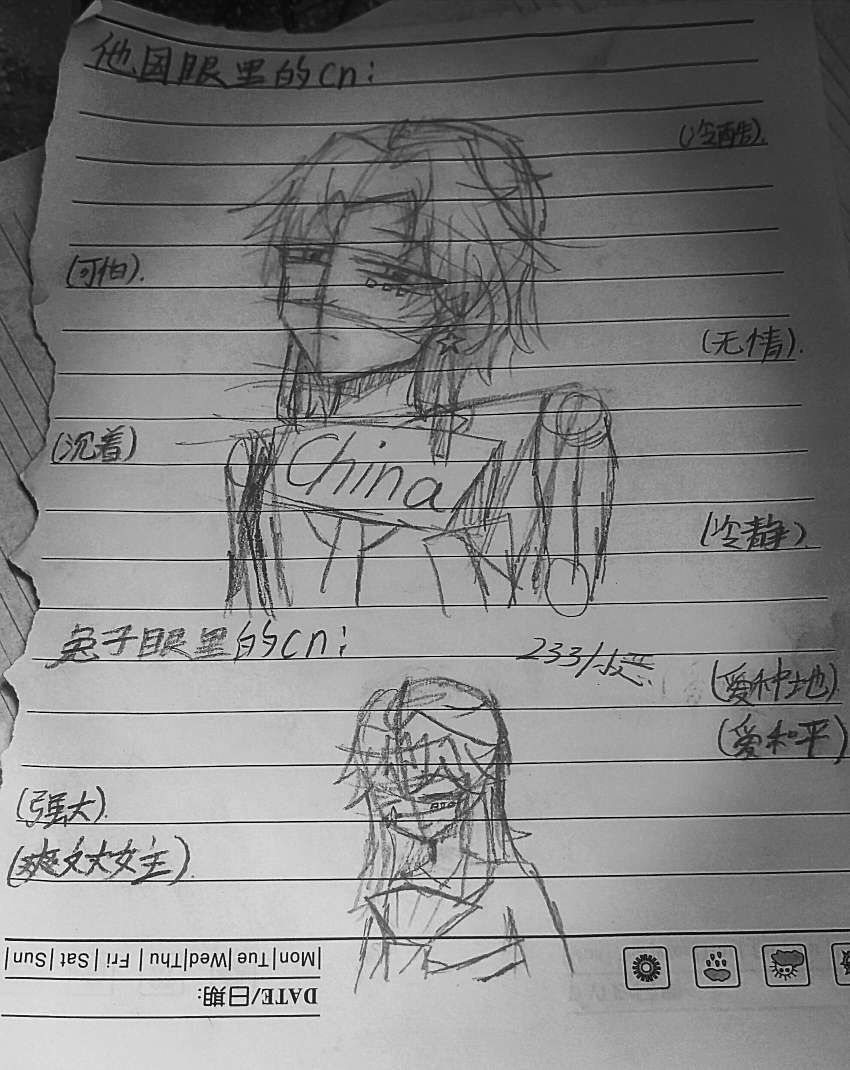 他国眼里的cn:
(冷酷).
(可怕).
(无情).
(沉着)
China
(冷静).
兔子眼里的cn:
233/小恶
(爱种地)
(爱和平)
(强大).
(爽文大女主).
Mon|Tue|Wed|Thu|Fri|Sat|Sun|
DATE/日期: